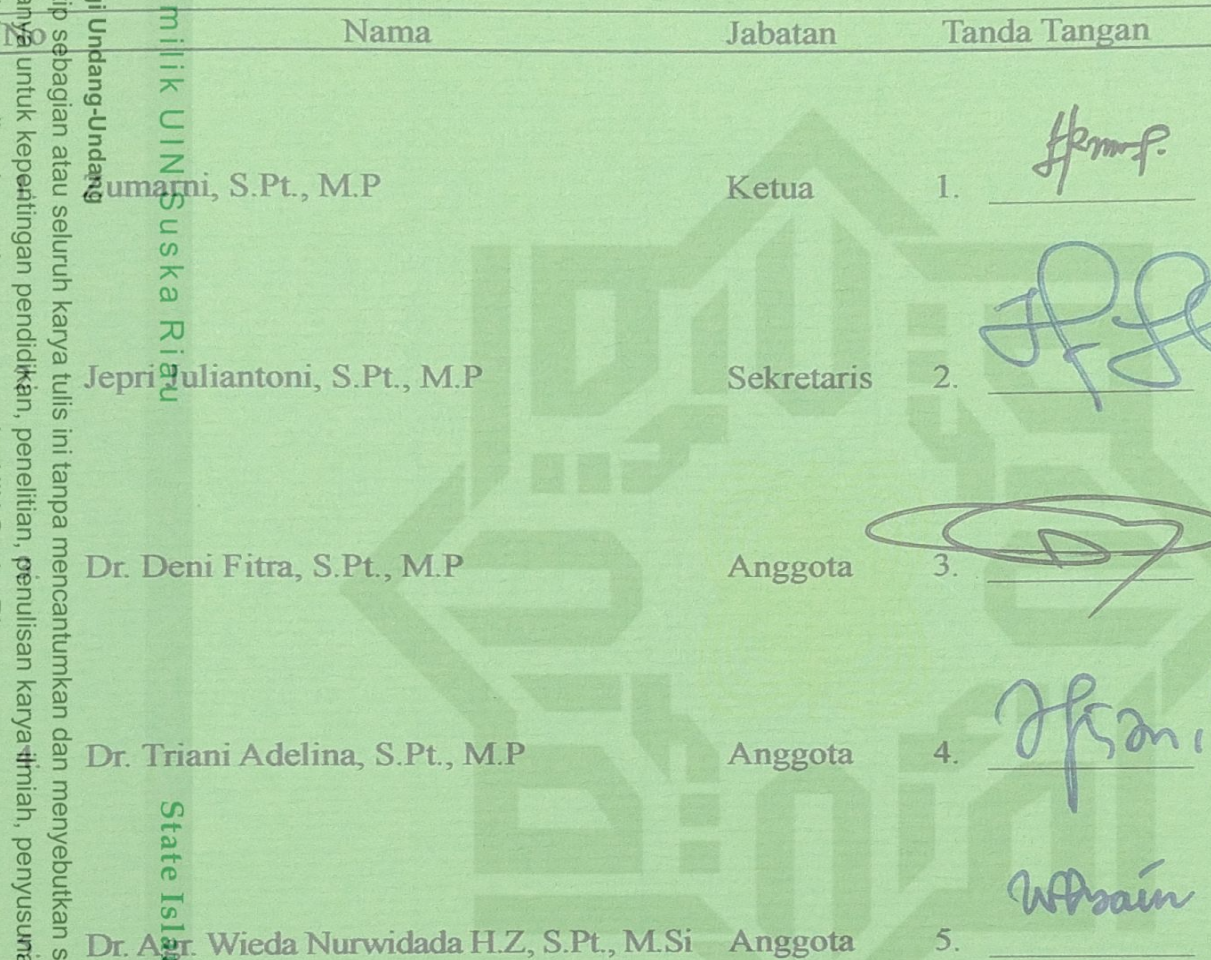 No Nama Jabatan Tanda Tangan
Zumarni, S.Pt., M.P Ketua 1.
Jepri Juliantoni, S.Pt., M.P Sekretaris 2.
Dr. Deni Fitra, S.Pt., M.P Anggota 3.
Dr. Triani Adelina, S.Pt., M.P Anggota 4.
Dr. Wieda Nurwidada H.Z, S.Pt., M.Si Anggota 5.
milik UIN Suska Riau
State
Undang-Undang
sebagian atau seluruh karya tulis ini tanpa mencantumkan dan menyebutkan
untuk kepentingan pendidikan, penelitian, penulisan karya ilmiah,